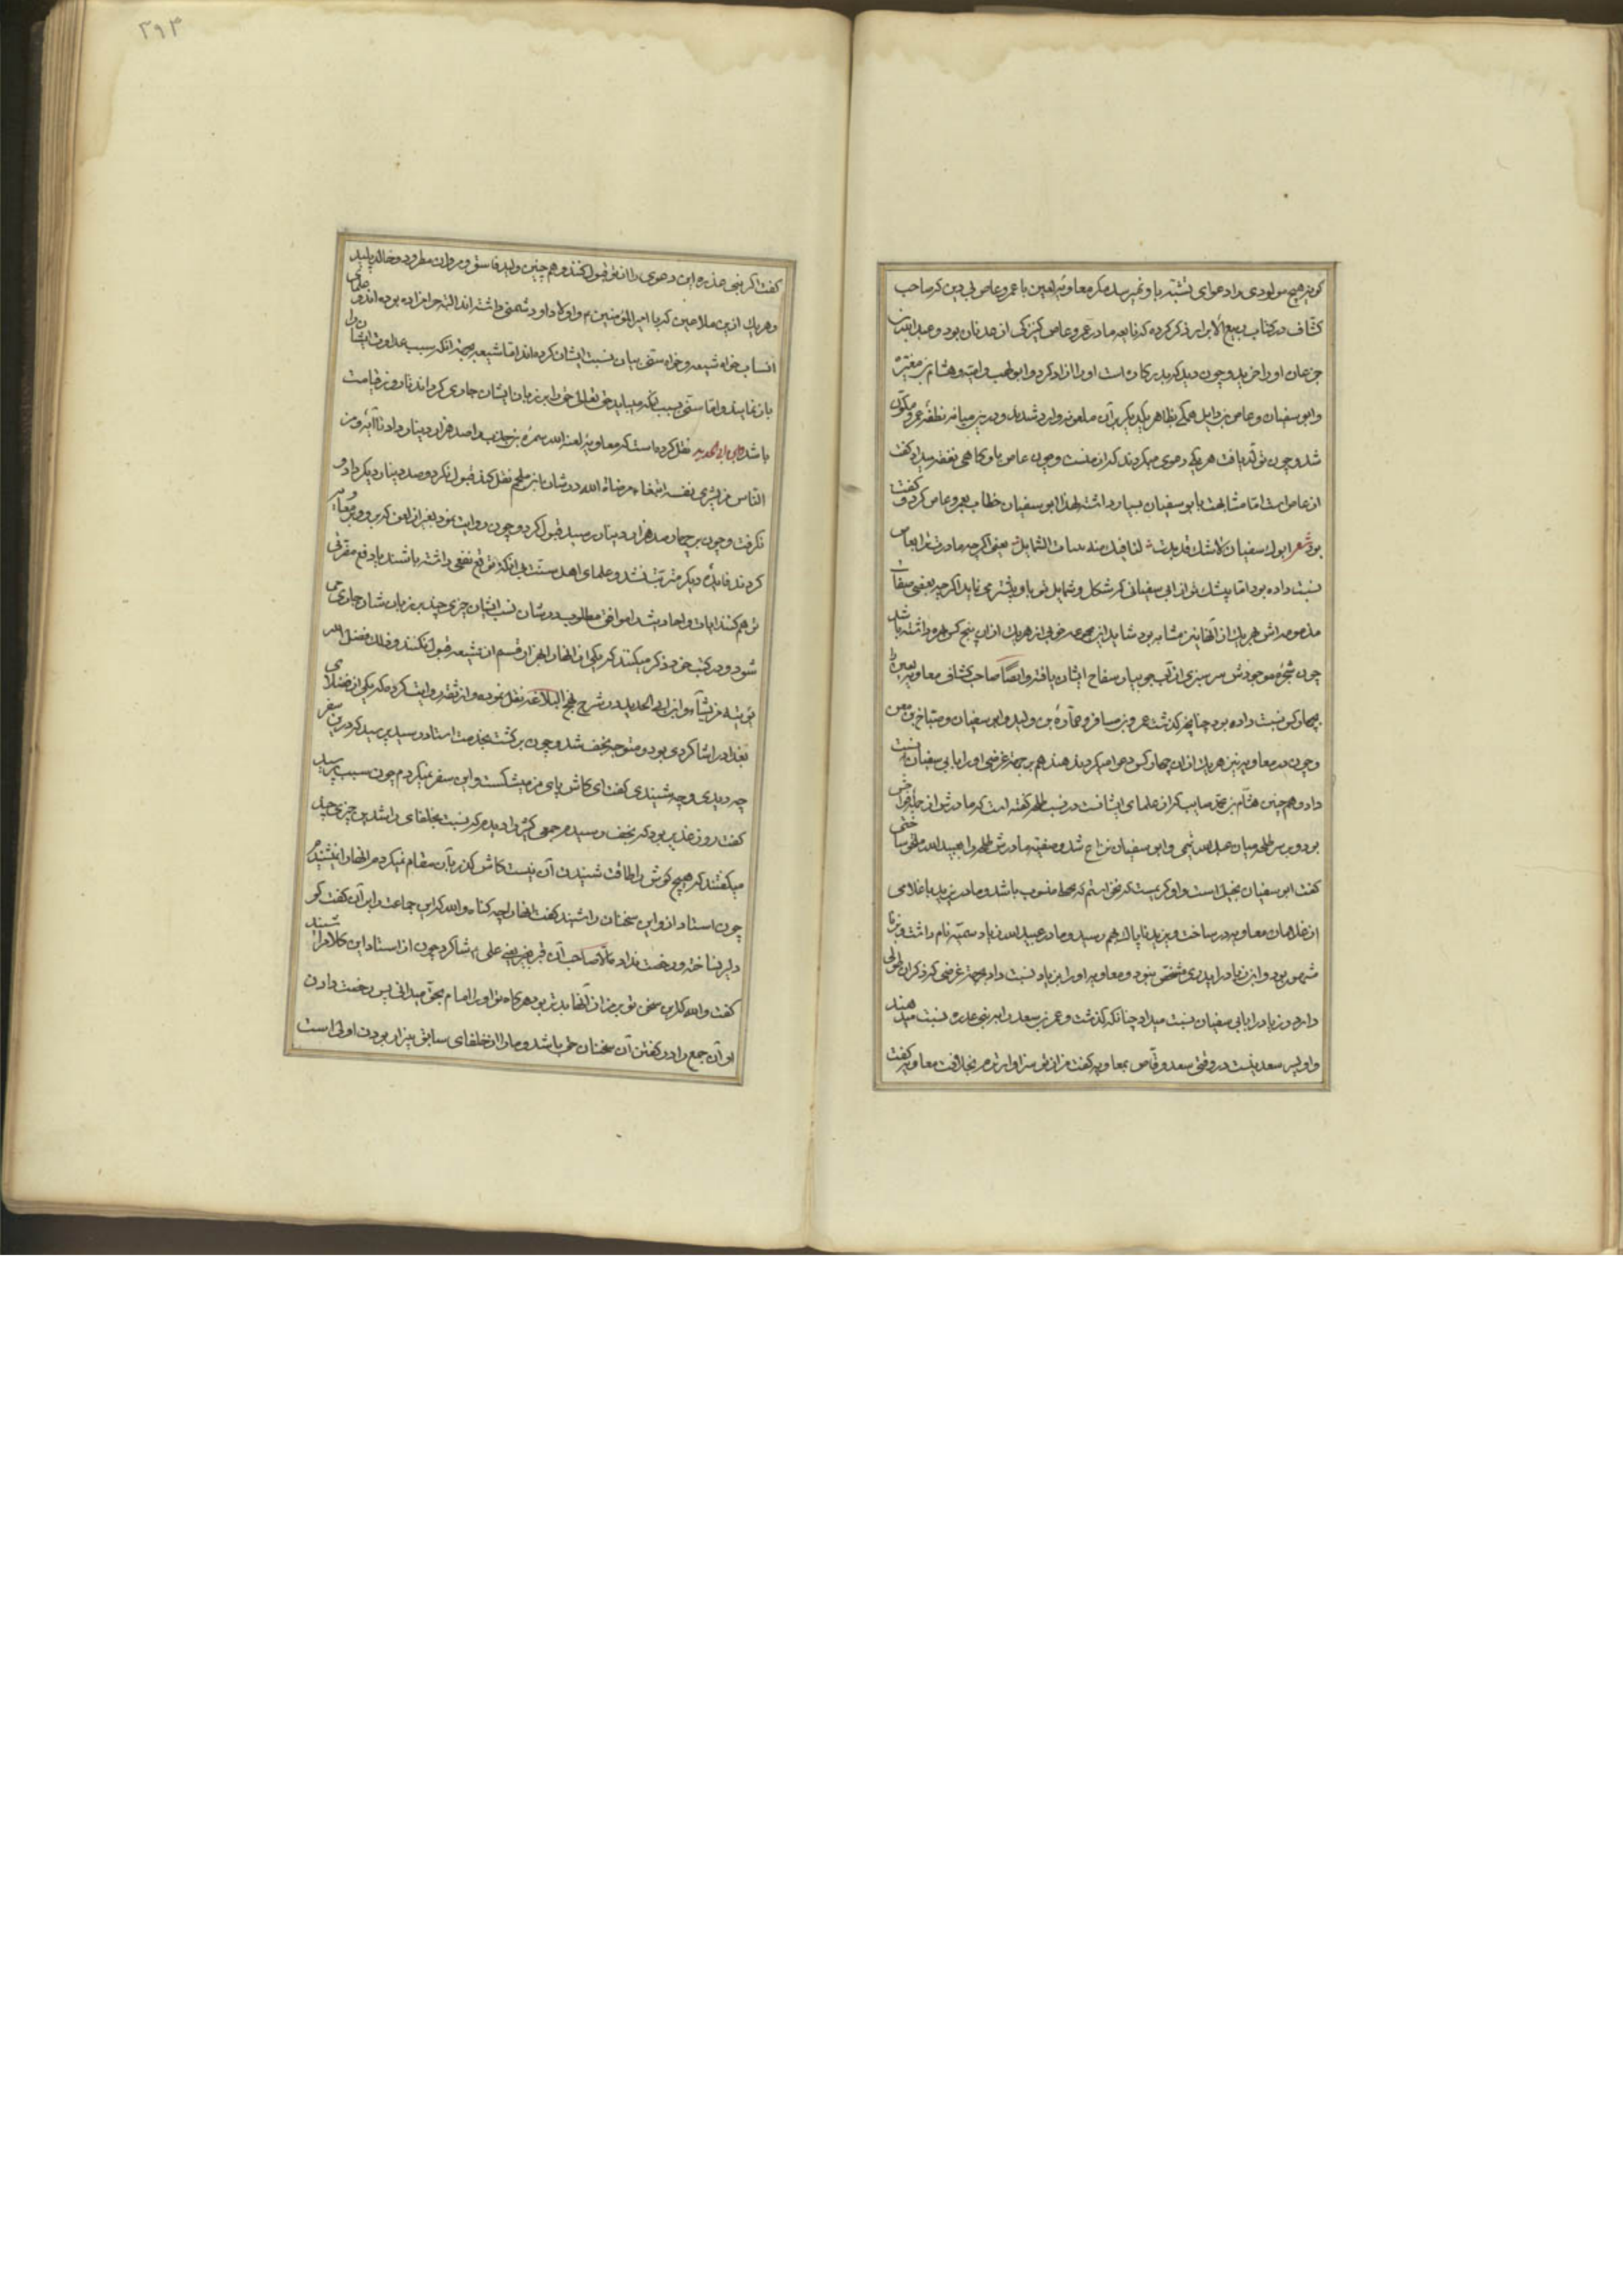 کویند هیچ مولودی را دعوای نشبتر باو نمیرسد مکر معاویهٔ لعین با عمرو عاص بی دین که صاحب
کشّاف در کتاب ربیع الابرار ذکر کرده که نابغه مادر عمرو عاص کنیزکی از عدنان بود و عبدالله بن
جزعان او را خرید و چون دید که بدر کاره است او را ازاد کرد و ابو لهب و امیّه و هشام بن مغیره
وابو سفیان و عاص بن وایل همکی بظاهر یکدیکر بر آن ملعونه وارد شدند و درین میانه نطفهٔ عمرو متکوّن
شد و چون تولّد یافت هر یکی دعوی میکردند که از منست و چون عاص باو کاهی نفقه میداد کفت
از عاص است امّا مشابهت بابو سفیان بسیار داشت لهذا ابو سفیان خطاب بعمرو عاص کرد و کفت
بود شعر ابوك سفیان لاشك قد بدت لنا فیك منه بینات الشمایل یعنی اکرچه مادرت ترا بعاص
نسبت داده بود امّا بیشك تو از ابی سفیانی که شکل و شمایل تو باو بیشتر می نماید اکرچه بعضی صفات
مذمومه اش بهر یك از آنها نیز مشابه بود شاید از مجموعه خوبی از هر یك از ان پنج کس بهره داشته باشد
چون شجرهٔ موجودش سرسبزی از آب جویبار سفاح ایشان یافته وایضا صاحب کشاف معاویه لعین را
بچهار کس نسبت داده بود چنانچه کذشت عمرو بن مسافر و عمارة بن ولید و ابو سفیان و صباح بن مغنی
و چون پدر معاویه نیز هر یك از ان چهار کس دعوا میکردند هند هم بر جهة غرضی او را بابی سفیان نسبت
داد و هم چنین هشام بن محمّد سایب که از علمای ایشانست در نسب طلحه کفته است که مادرش از جمله فواحش
بود و بر سر طلحه میان عبدالله تیمی و ابو سفیان نزاع شد و صفیّه مادرش طلحه را بعبید الله ملحق ساخت
کفت ابو سفیان بخیل است و او کریمست که نخواستم که بخط منسوب باشد و مادر یزید با غلامی
از غلامان معاویه در ساخت و یزید ناپاك بهم رسید و مادر عبید الله زیاد سمیّه نام داشت و بزنا
مشهور بود و ابن زیاد را پدری مشخّص نبود و معاویه او را بزیاد نسبت داد بجهة غرضی که ذکر ان طولی
دارد و زیاد را بابی سفیان نسبت میداد چنانکه کذشت و عمر بن سعد را به بنی عذره نسبت میدهند
واو پسر سعد نیست در وقتی سعد وقّاص بمعاویه کفت من از تو سزاوارترم بخلافت معاویه کفت
کفت اکر بنی عذره این دعوی را از تو قبول کنند و هم چنین ولید فاسق و مروان مطرود و خالد پلید
و هر یك از ین ملاعین که با امیر المؤمنین ع و اولاد او دشمنی داشته اند البته حرامزاده بوده اند و علمای
انساب خواه شیعه و خواه سنّی بیان نسبت ایشان کرده اند امّا شیعه بجهة انکه سبب عداوت ایشان را
باز نمایند و امّا سنّی بسبب انکه میباید حق تعالی حق را بر زبان ایشان جاری کرداند تا روز قیامت
باشد ابن ابی الحدید نقل کرده است که معاویه لعنه الله سمرة بن جندب را صد هزار دینار داد تا آیهٔ و من
الناس من یشری نفسه ابتغاء مرضاة الله در شان ابن ملجم نقل کند قبول نکرد و صد دینار دیکر داد و
نکرفت و چون بر چهار صد هزار دینار رسید قبول کرد و چون روایت نمود بغیر از لعن که بر وی و بر معاویه
کردند فایدهٔ دیکر مترتّب نشد و علمای اهل سنّت بی انکه توقع نفعی داشته باشند یا دفع مضرتی
توهم کنند ایات و احادیث را موافق مطلوب در شان نسب ایشان چیزی چند بر زبان شان جاری می
شود و در کتب خود ذکر میکنند که یکی از انهارا بهزار قسم از شیعه قبول نکنند و ذلك فضل الله
یؤتیه من یشآء و ابن ابی الحدید در شرح نهج البلاغه نقل نموده و از ثقه روایت کرده که یکی از فضلای
بغداد را شاکردی بود و متوجه نجف شد و چون برکشت بخدمت استاد رسید پرسید که درین سفر
چه دیدی و چه شنیدی کفت ای کاش پای من میشکست و این سفر نمیکردم چون سبب پرسید
کفت روز غدیر بود که بنجف رسیدم جمعی کثیر را دیدم که نسبت بخلفای راشدین چیزی چند
میکفتند که هیچ کوش را طاقت شنیدن آن نیست کاش کذر بآن مقام نمیکردم و انهارا نمیشنیدم
چون استاد از و این سخنان را شنید کفت انهارا چه کناه والله که این جماعت را برآن کفت کو
دلیر نساخته و رخصت نداد مکر صاحب آن قبر یعنی علی ع شاکرد چون از استاد این کلام را شنید
کفت والله که این سخن تو بر من از آنها بدتر بود هر کاه تو او را امام بحق میدانی پس رخصت دادن
او آن جمع را در کفتن آن سخنان حق باشد و مارا از خلفای سابق بیزار بودن اولی است
۳۹۳